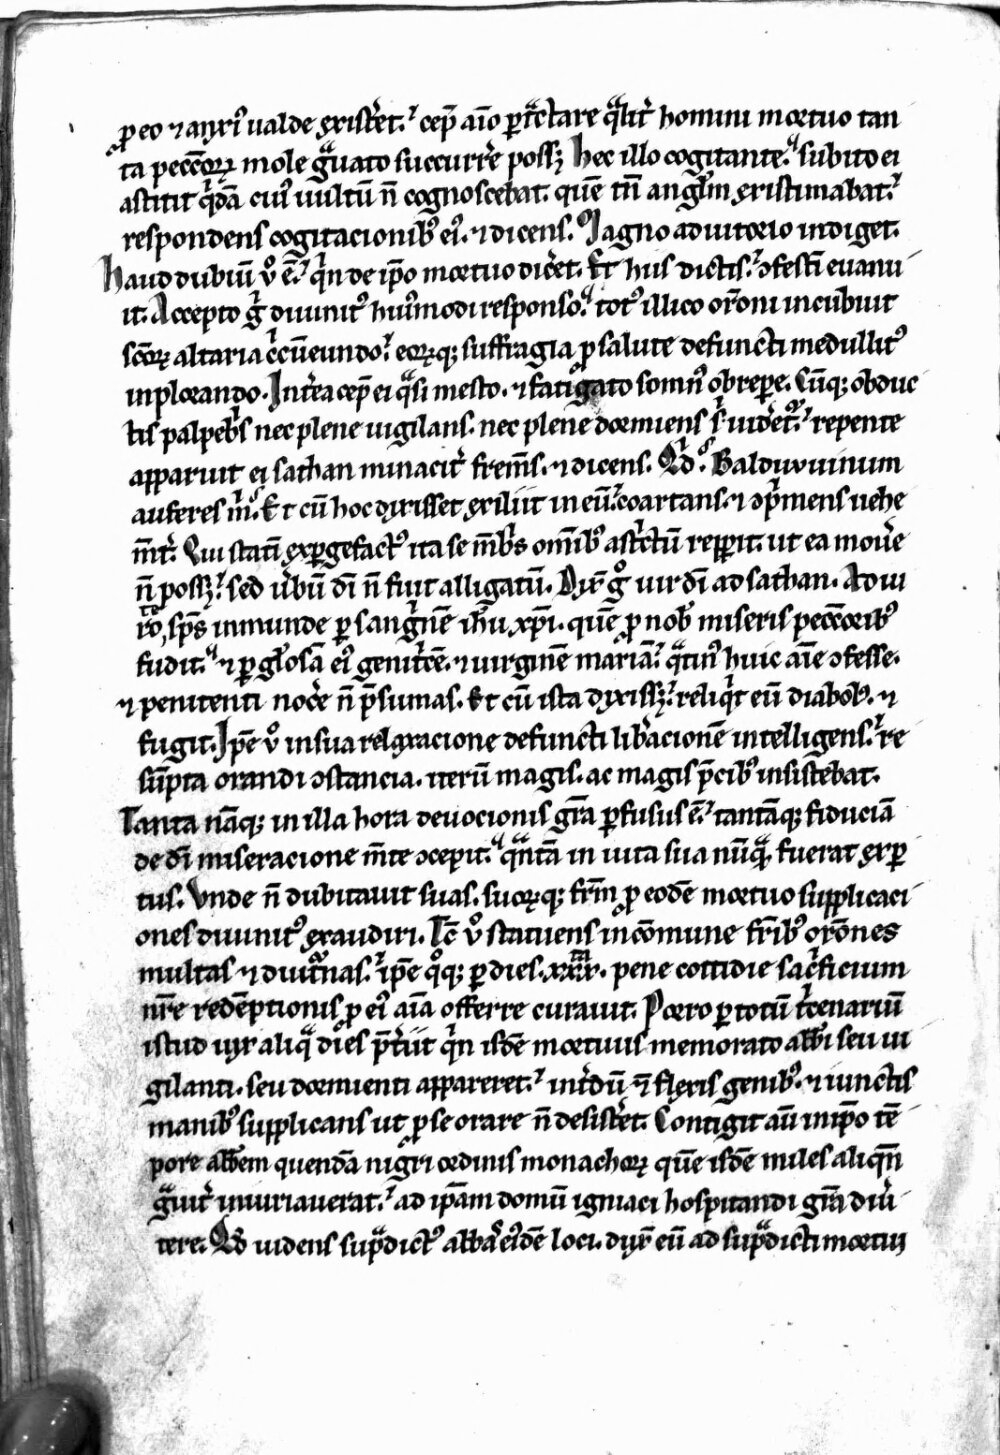 ꝓ eo ⁊ anxiꝰ ualde existẽt. cep̃ aĩo ꝑtctare qͣlit̃ homini mortuo tan
ta pecc̃orꝝ mole gͣuato succurr̃e possꝫ hec illo cogitante. subito ei
astitit qͥdã cuiꝰ uultũ ñ cognoscebat. quẽ tñ angl̃m existimabat.
respondens cogitacionibꝰ eiꝰ. ⁊ dicens. Magno adiutorio indiget.
haud dubiũ ů ẽ. qͥn de ip̃o mortuo dic̃et. Et hiis dictis. ꝯfestĩ euanu
it. Accepto gͥ diuinitꝰ huiꝰmodi responso. totꝰ illico or̃oni incubuit
sc̃orꝝ altaria cͥcũeundo. eorꝝqꝫ suffragia ꝓ salute defuncti medullitꝰ
inplorando. Int̃ea cep̃ ei qͣsi mesto. ⁊ fatigato somnꝰ obrepe. Cũqꝫ obduc
tis palpebͥs nec plene uigilans. nec plene dormiens sͥ uidet̃. repente
apparuit ei sathan minacit̃ frem̃s. ⁊ dicens. Qd̃. Balduuuinum
auferes mͥ. Et cũ hoc dixisset exiliit in eũ. coartans. ⁊ ꝯp̃mens uehe
m̃t̃. Qui statĩ exꝑgefactꝰ ita se mẽbͥs om̃ibꝰ astͥctũ repp̃it. ut ea mou̾e
ñ possꝫ. sed u̾bũ dĩ ñ fuit alligatũ. Dix̃ gͦ uir dĩ ad sathan. Adiu
ro te, sp̃s inmunde ꝑ sangͥnẽ ih̃u xp̃i. quẽ ꝓ nob̃ miseris pecc̃oribꝰ
fudit. ⁊ ꝑ gl̃osã eiꝰ genitͥcẽ. ⁊ uirginẽ mariã. qͣtinꝰ huic aĩe ꝯfesse.
⁊ penitenti noc̃e ñ p̃sumas. Et cũ ista dixissꝫ. reliqͥt eũ diabolꝰ. ⁊
fugit. Ip̃e ů in sua relaxacione defuncti lib̃acionẽ intelligens. re
sũpta orandi ꝯstancia. iterũ magis. ac magis p̃cibꝰ insistebat.
Tanta nãqꝫ in illa hora deuocionis gr̃a ꝑfusus ẽ. tantãqꝫ fiduciã
de dĩ miseracione m̃te ꝯcepit. qͣntã in uita sua nũqͣ fuerat exꝑ
tus. Vnde ñ dubitauit suas. suorꝝqꝫ fr̃m ꝓ eodẽ mortuo supplicaci
ones diuinitꝰ exaudiri. Tc̃ ů statuens in cõmune fr̃ibꝰ or̃ones
multas ⁊ diutͥnas. ip̃e qͦqꝫ ꝑ dies .xxx. pene cottidie sacͥficium
nr̃e redẽptionis ꝓ eiꝰ aĩa offerre curauit. Porro ꝑ totũ tͥcenariũ
istud uix aliqͣ dies p̃t̃iit qͥn isdẽ mortuus memorato abb̃i seu ui
gilanti. seu dormienti appareret. int̃dũ ⁊ flexis genibꝰ. ⁊ iunctis
manibꝰ supplicans ut ꝓ se orare ñ desist̃et. Contigit aũ in ip̃o tẽ
pore abb̃em quendã nigri ordinis monachorꝝ quẽ isdẽ miles aliqñ
gͣuit̃ iniuriauerat. ad ip̃am domũ igniaci hospitandi gr̃a diu̾
tere. Qd̃ uidens supͣdictꝰ abba eiꝰdẽ loci. dix̃ eũ ad supͣdicti mortui